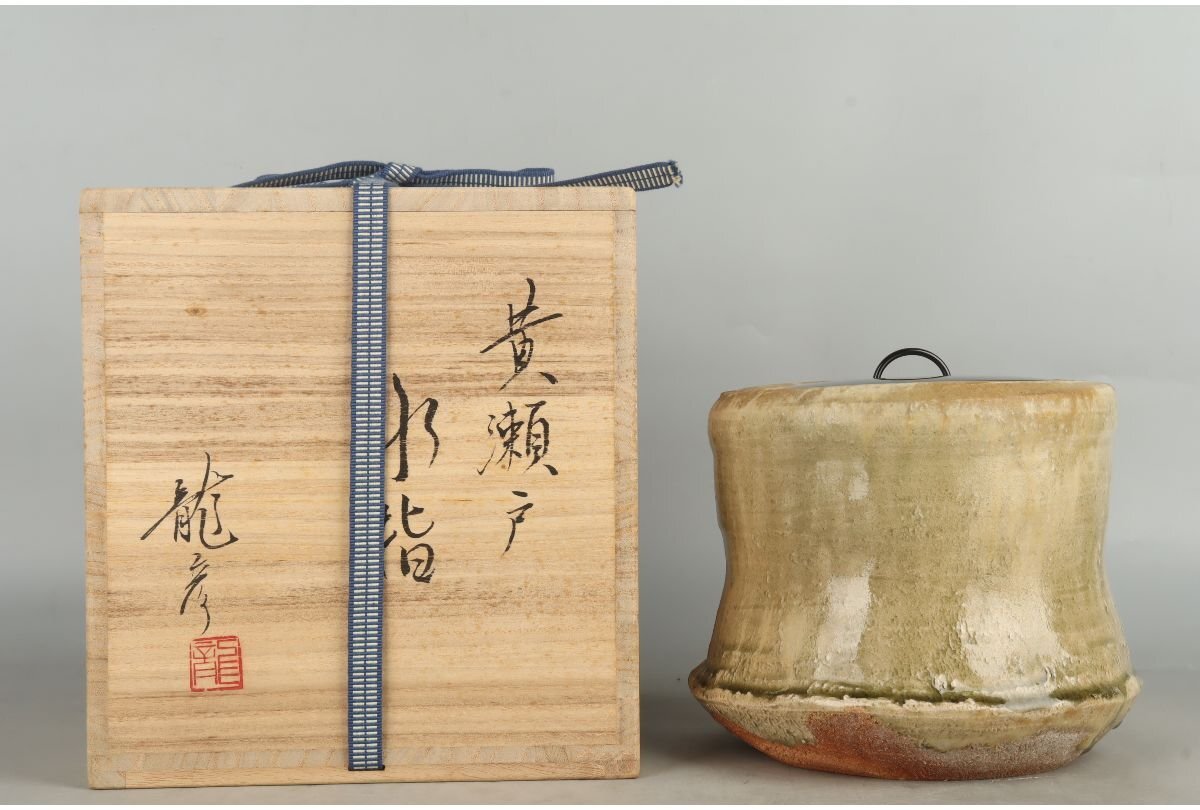 黄瀬戸
水指
龍彦
龍